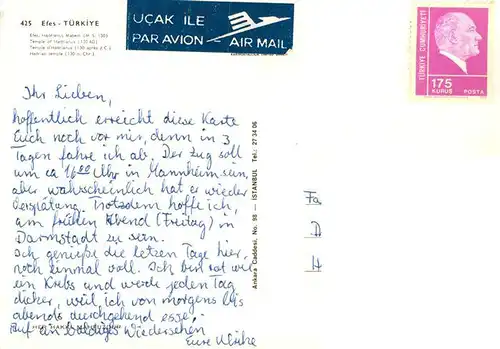 425 Efes - TÜRKİYE
Efes, Hadrianus Mabedi
Temple of Hadrianus
Temple d'Hadrianus
UÇAK İLE
PAR AVION - AIR MAIL
TÜRKİYE CUMHURİYETİ
175
KURUŞ POSTA
Ihr Lieben,
hoffentlich erreicht diese Karte
Euch noch vor mir, denn in 3
Tagen fahre ich ab. Der Zug soll
um ca 16.00 Uhr in Mannheim sein,
aber wahrscheinlich hat er wieder
Verspätung. Trotzdem hoffe ich,
am frühen Abend (Freitag) in
Darmstadt zu sein.
Ich genieße die letzen Tage hier,
noch einmal voll. Ich bin rot wie
ein Krebs und werde jeden Tag
dicker, weil ich von morgens bis
abends durchgehend esse.
Auf ein baldiges Wiedersehen
Eure Ulrike
Ankara Caddesi, No. 98 - ISTANBUL Tel.: 27 34 06
Fa
D
H